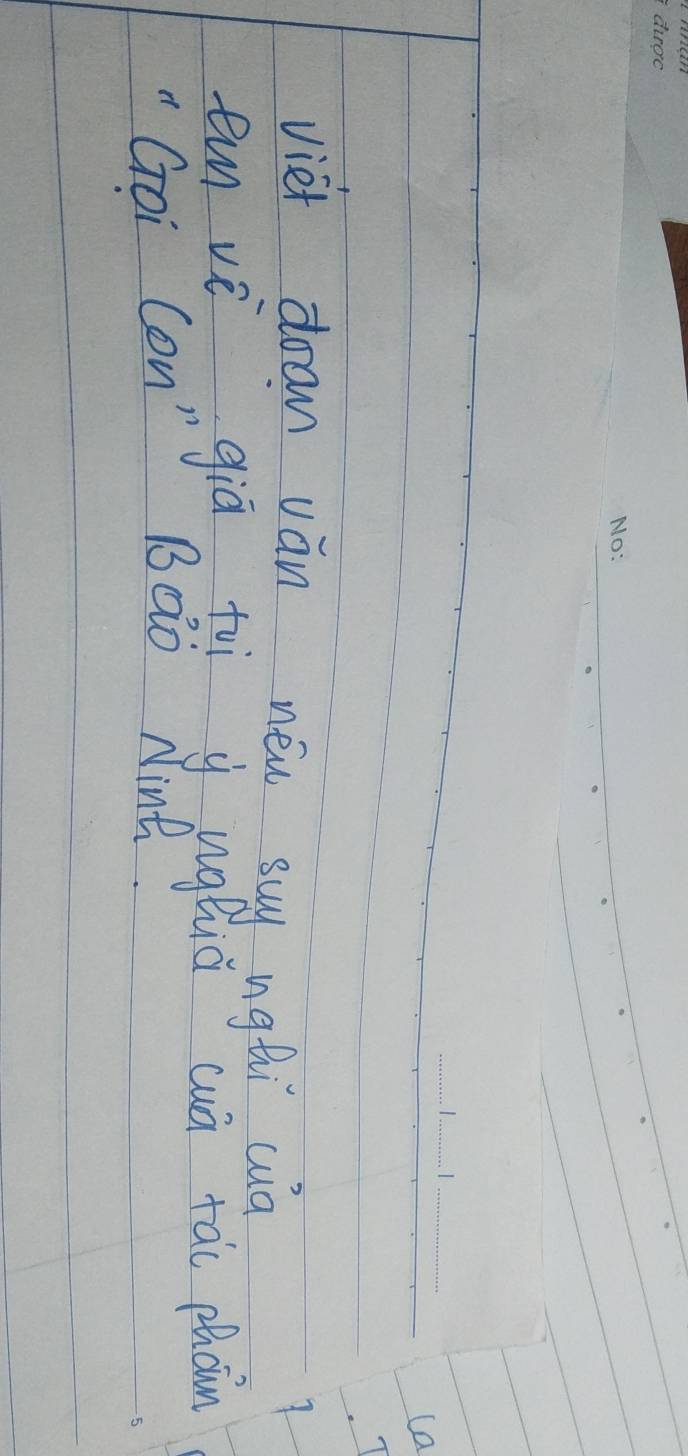 được
No:
viết đoạn văn nêu suy nghĩ của
em về giá trị ý nghĩa của tác phẩm
"Gọi Con" Bảo Ninh.
5